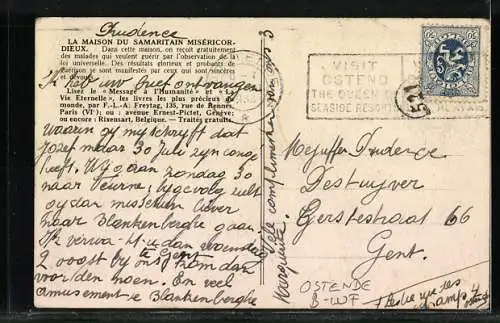 Prudence
LA MAISON DU SAMARITAIN MISÉRICOR-
DIEUX. Dans cette maison, on reçoit gratuitement
des malades qui veulent guérir par l'observation de la
loi universelle. Des résultats glorieux et probants de
guérison se sont manifestés par ceux qui sont sincères
et dévoués.
Lisez le « Message à l'Humanité » et « La
Vie Eternelle », les livres les plus précieux du
monde, par F.-L.-A. Freytag, 135, rue de Rennes,
Paris (VIe); ou : avenue Ernest-Pictet, Genève;
ou encore : Rixensart, Belgique. — Traités gratuits.
Ik heb uw brief ontvangen
Waarin gy my schryft dat
Jozef maar 30 Juli zyn congé
heeft. Wy gaan zondag 30
naar Veurne; bygevolg zult
gy dan misschien liever
naar Blankenberghe gaan
Ik verwacht u dan woensdag
te Gent
2 oogst by ons kom dan
voor den noen. En veel
amusement te Blankenberghe
Vele complimenten van ons 3
Marguerite
VISIT
OSTEND
THE QUEEN OF
SEASIDE RESORTS
521
Mejuffer Prudence
Destuyver
Gerststraat 66
Gent.
OSTENDE
B-WF